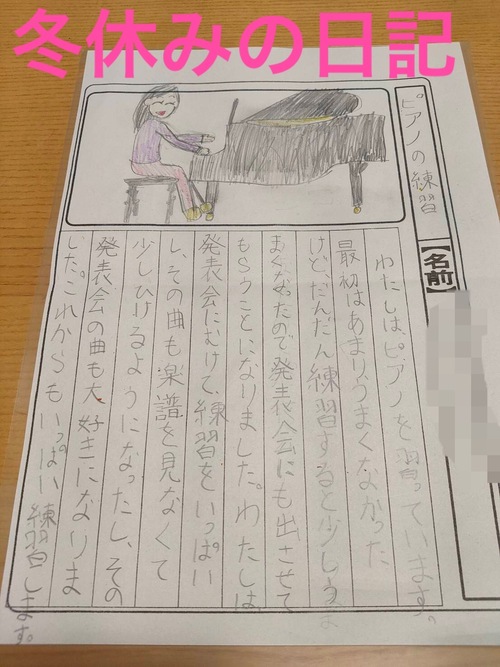 冬休みの日記
ピアノの練習
【名前】
わたしはピアノを習っています。
最初はあまりうまくなかった
けど、だんだん練習すると少しうま
まくなったので発表会にも出させて
もらうことになりました。わたしは
発表会にむけて、練習をいっぱい
し、その曲も楽譜を見なくて
少しひけるようになったし、その
発表会の曲も大好きになりま
した。これからもいっぱい練習します。